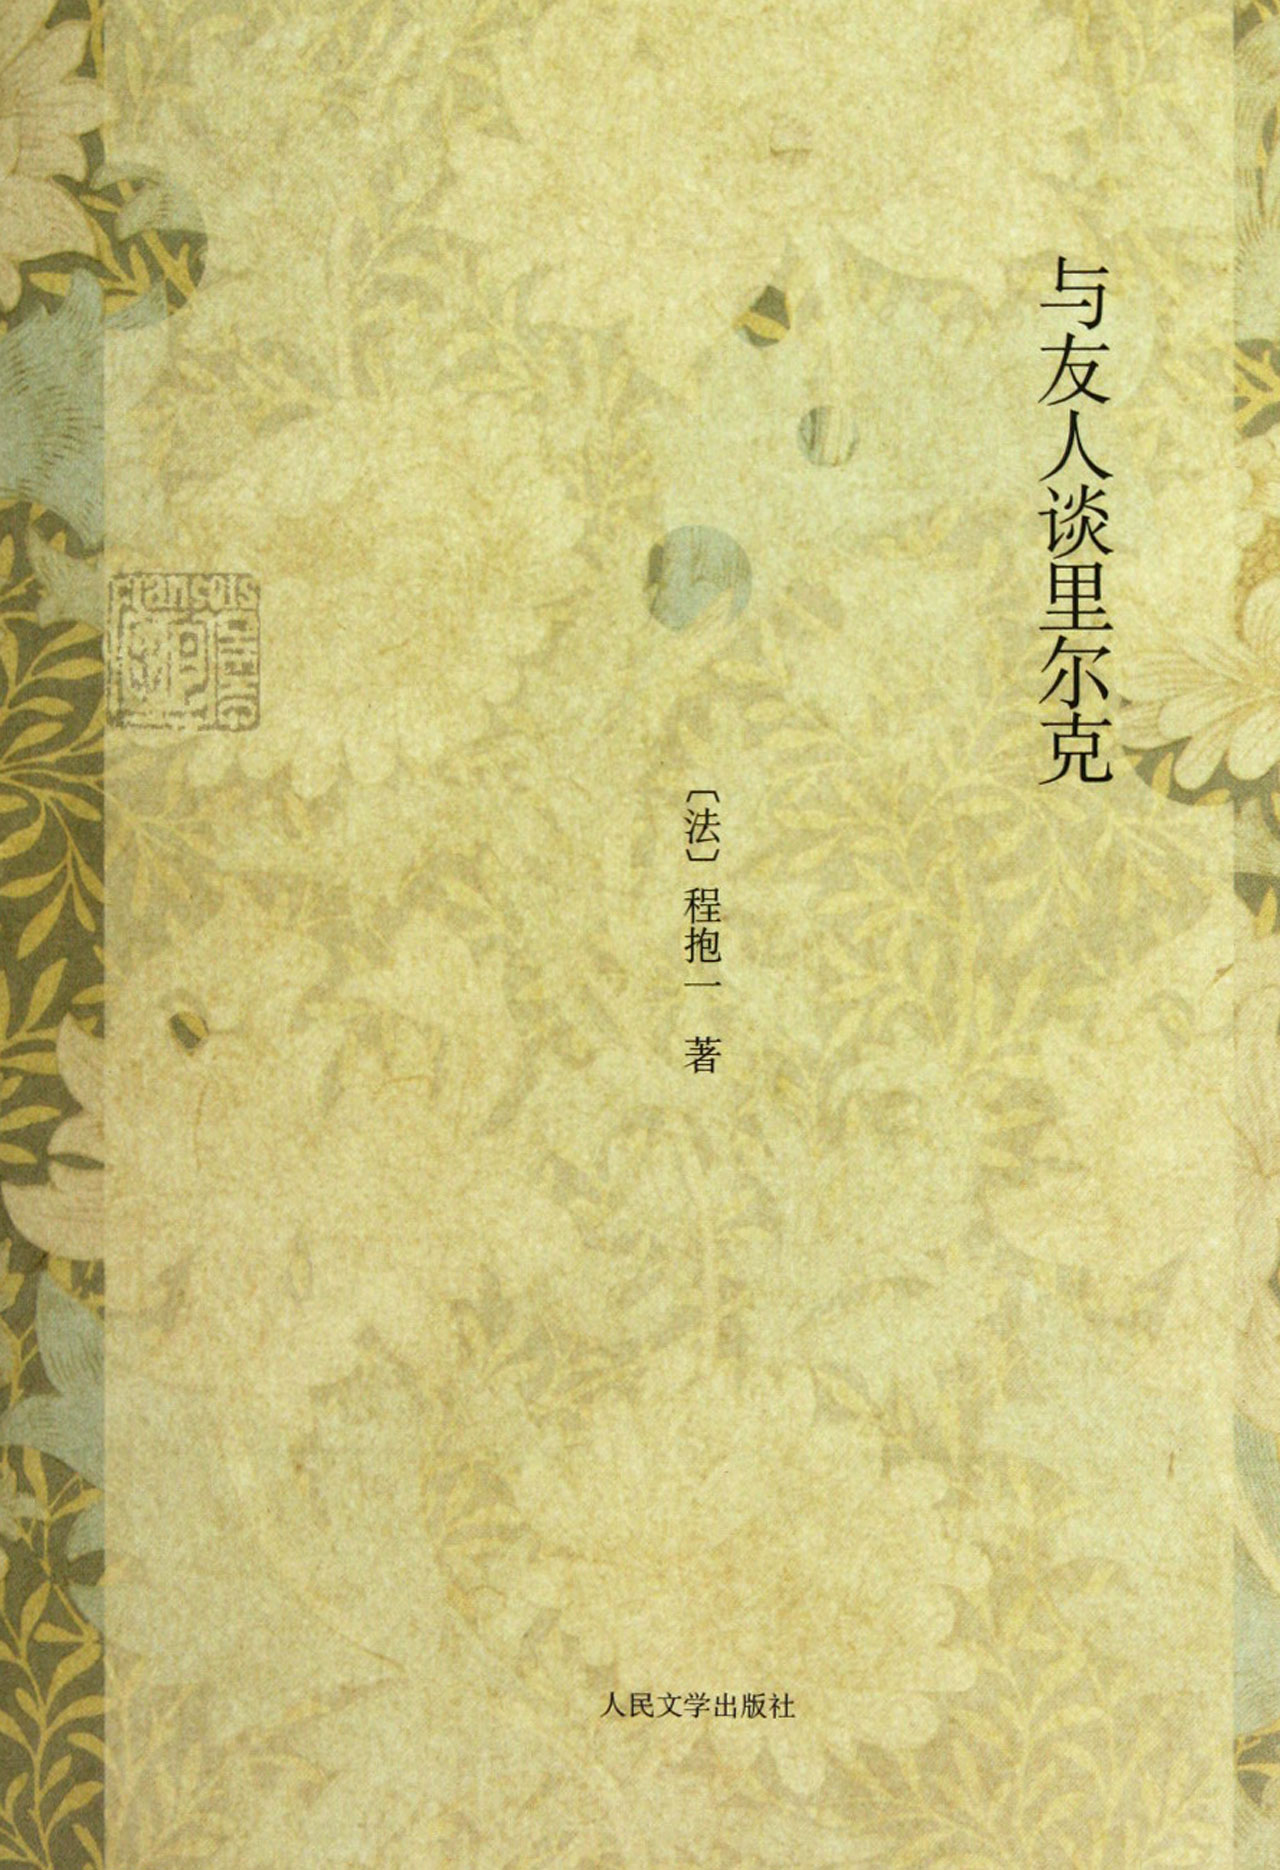 与友人谈里尔克
〔法〕程抱一 著
François
人民文学出版社